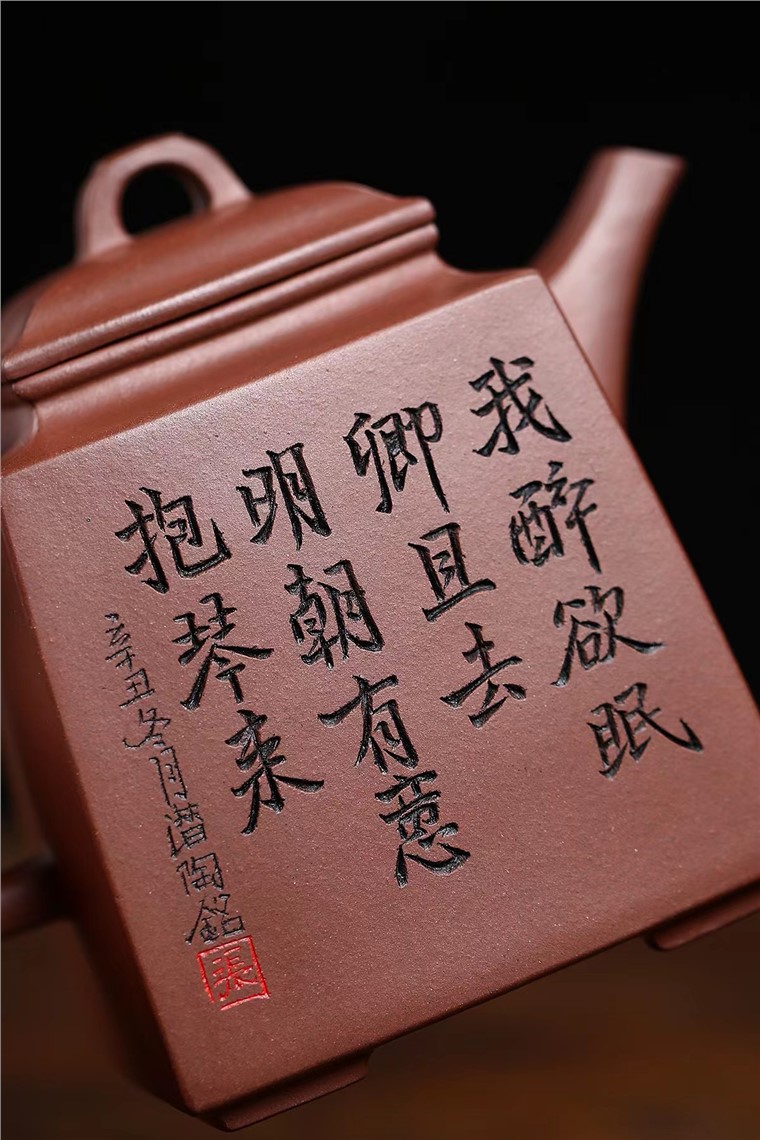 我醉欲眠
卿且去
明朝有意
抱琴来
辛丑冬月潜陶銘
張